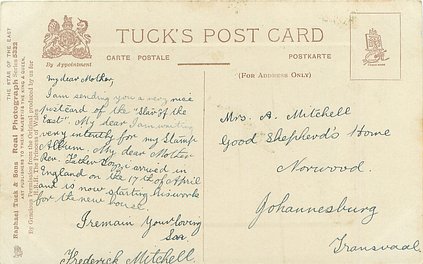 TUCK'S POST CARD
CARTE POSTALE
POSTKARTE
By Appointment
(FOR ADDRESS ONLY)
THE STAR OF THE EAST
Raphael Tuck & Sons Real Photograph Series 5232
ART PUBLISHERS TO THEIR MAJESTIES THE KING & QUEEN.
By Gracious Permission from the Original produced by us for
H.R.H. The Princess of Wales
my dear Mother,
I am sending you a very nice
postcard of the "Star of the
East". My dear I am waiting
very intently for my Stamp
Album. My dear Mother
Rev. Father arrived in
England on the 17th of April
and is now starting his work
for the new house.
I remain Your loving
Son
Frederick Mitchell
Mrs. A. Mitchell
Good Shepherd's Home
Norwood.
Johannesburg
Transvaal.